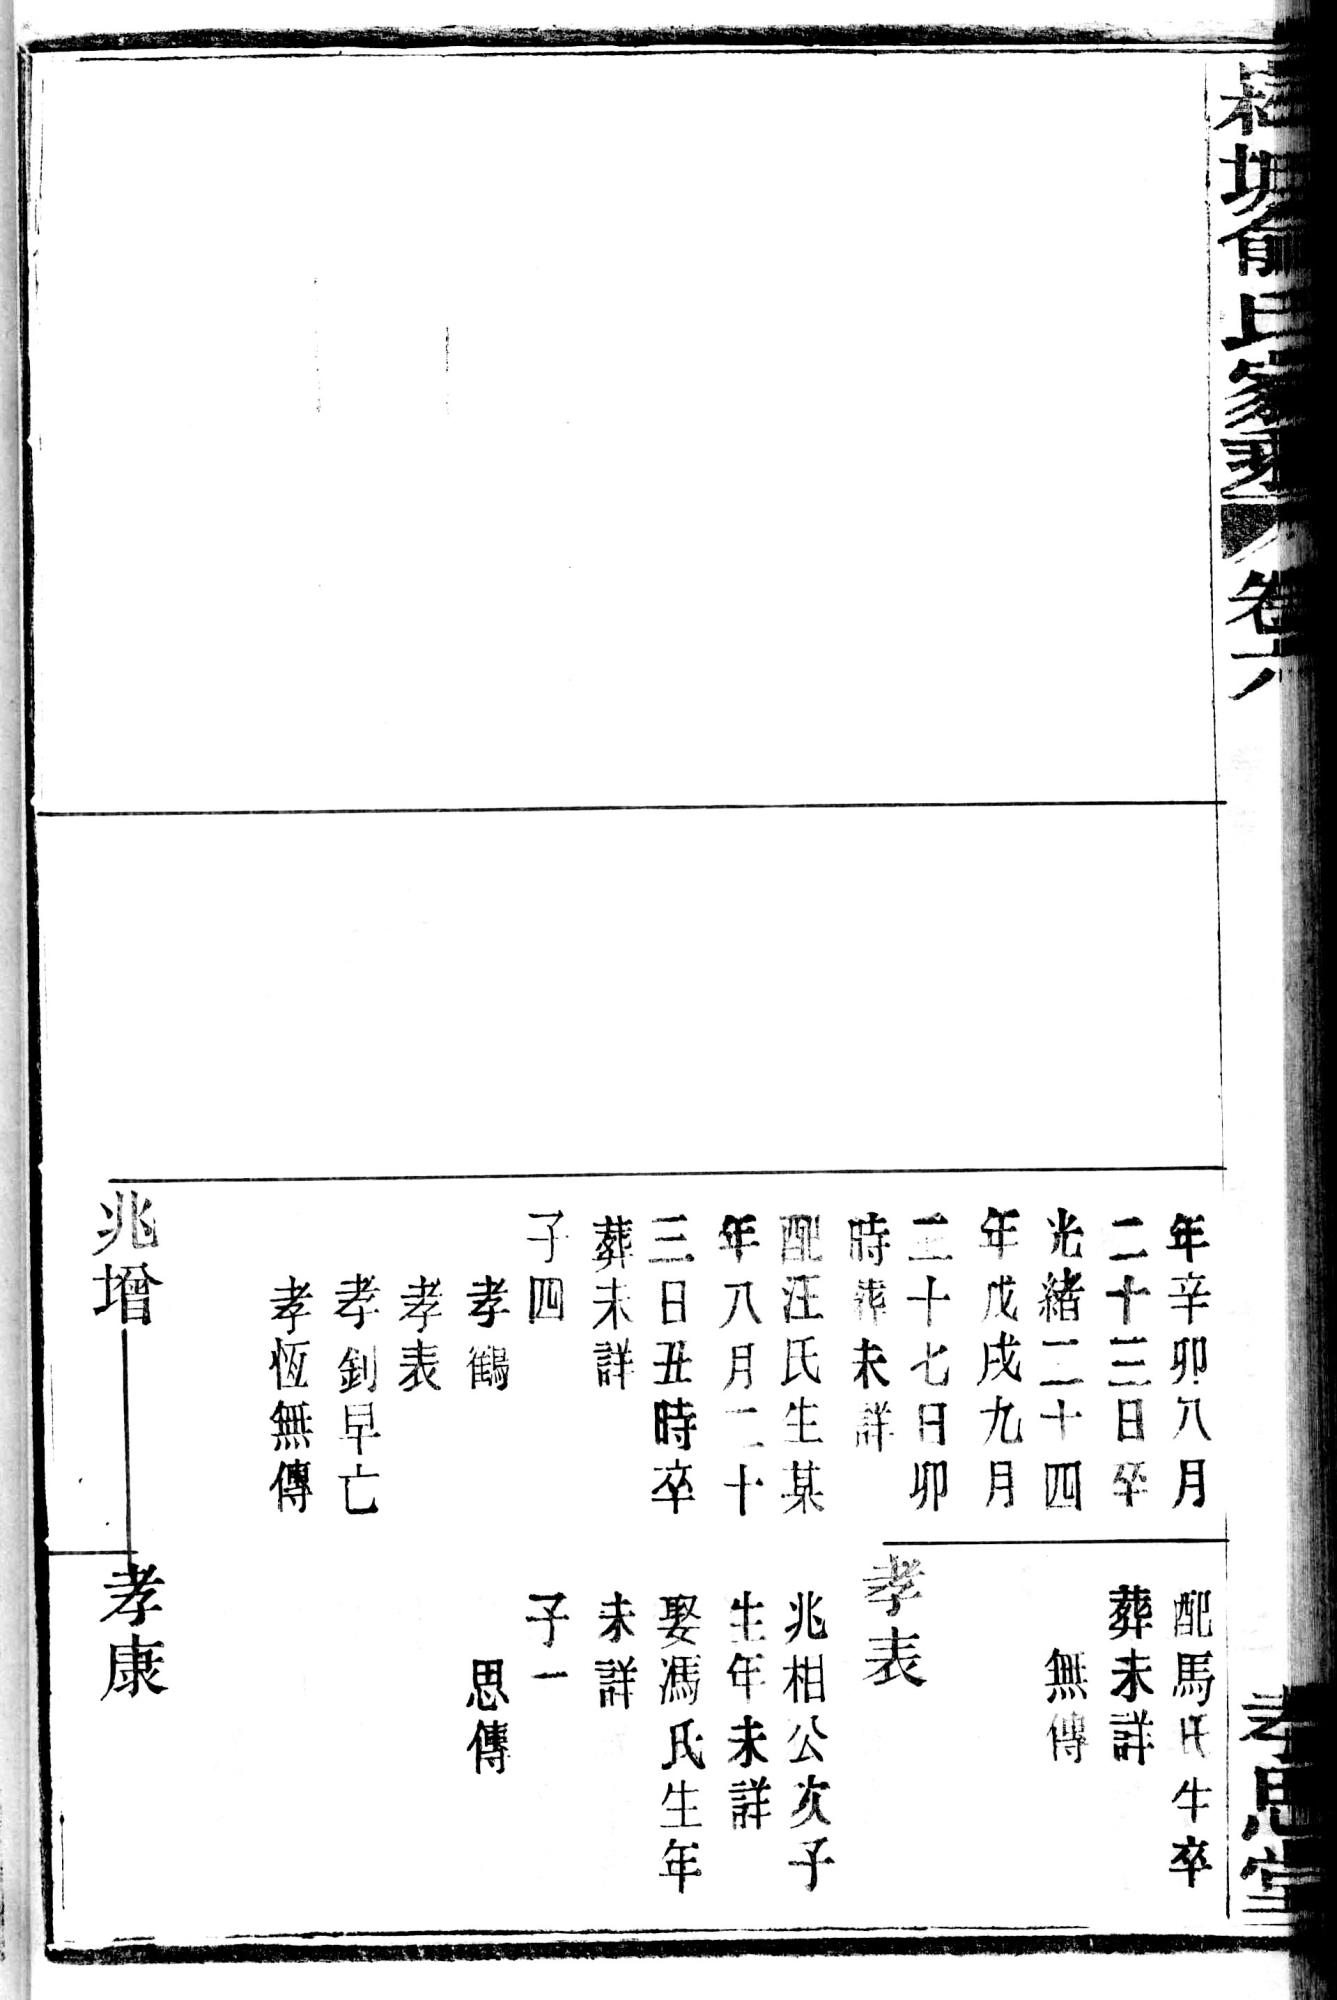 俞氏家乘
卷六
孝思堂
年辛卯八月
二十三日卒
光緒二十四
年戊戌九月
二十七日卯
時葬未詳
配汪氏生某
年八月二十
三日丑時卒
葬未詳
子四
孝鶴
孝表
孝釗早亡
孝恆無傳
兆增
配馬氏生卒
葬未詳
無傳
孝表
兆相公次子
生年未詳
娶馮氏生年
未詳
子一
思傳
孝康